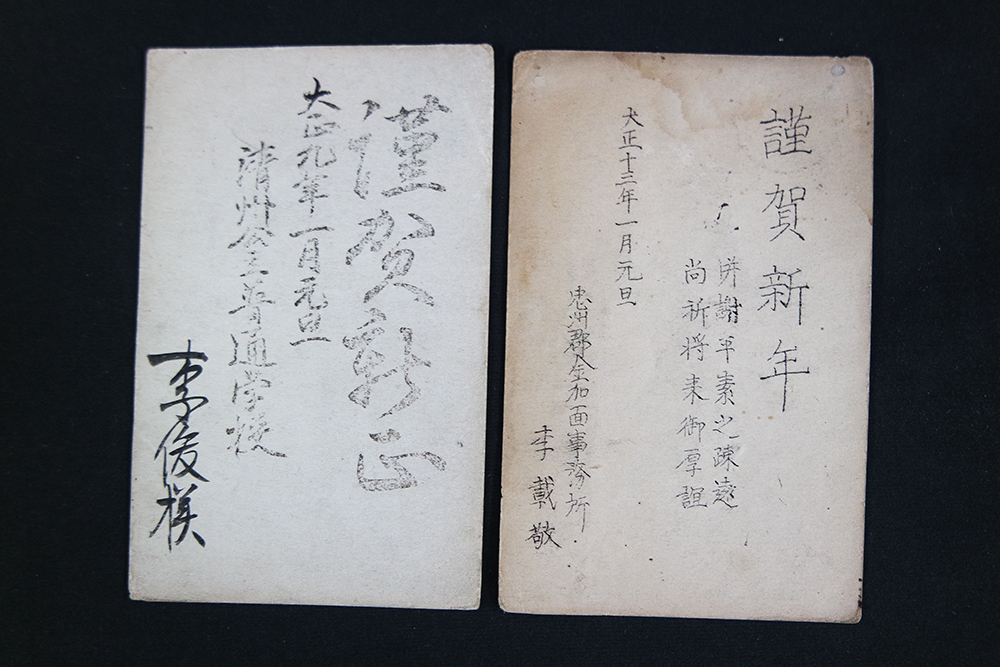 謹賀新正
大正九年一月元旦
清州公立普通学校
李俊模
謹賀新年
併謝平素之疎遠
尚祈将来御厚誼
大正十三年一月元旦
忠州郡金加面事務所
李載敬